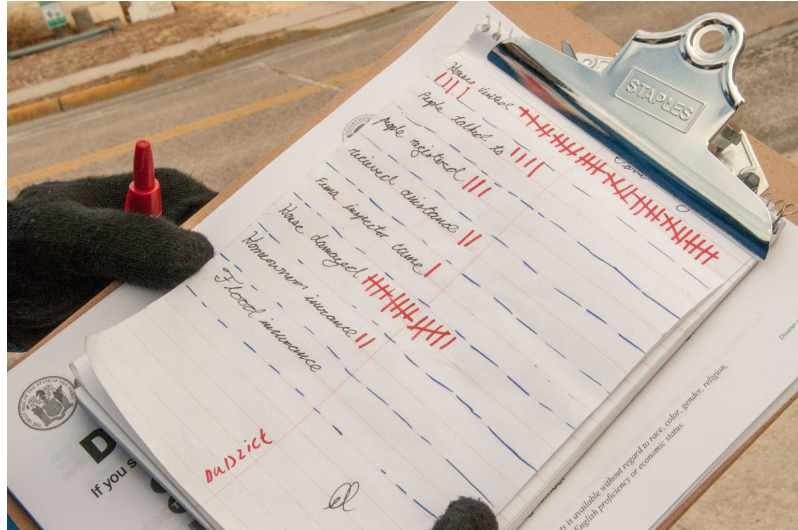 STAPLES
Houses visited
People talked to
people registered
recieved assistance
Fema inspector came
House damaged
Homeowners insurance
Flood insurance
If you s
ts is available without regard to race, color, gender, religion,
English proficiency or economic status.